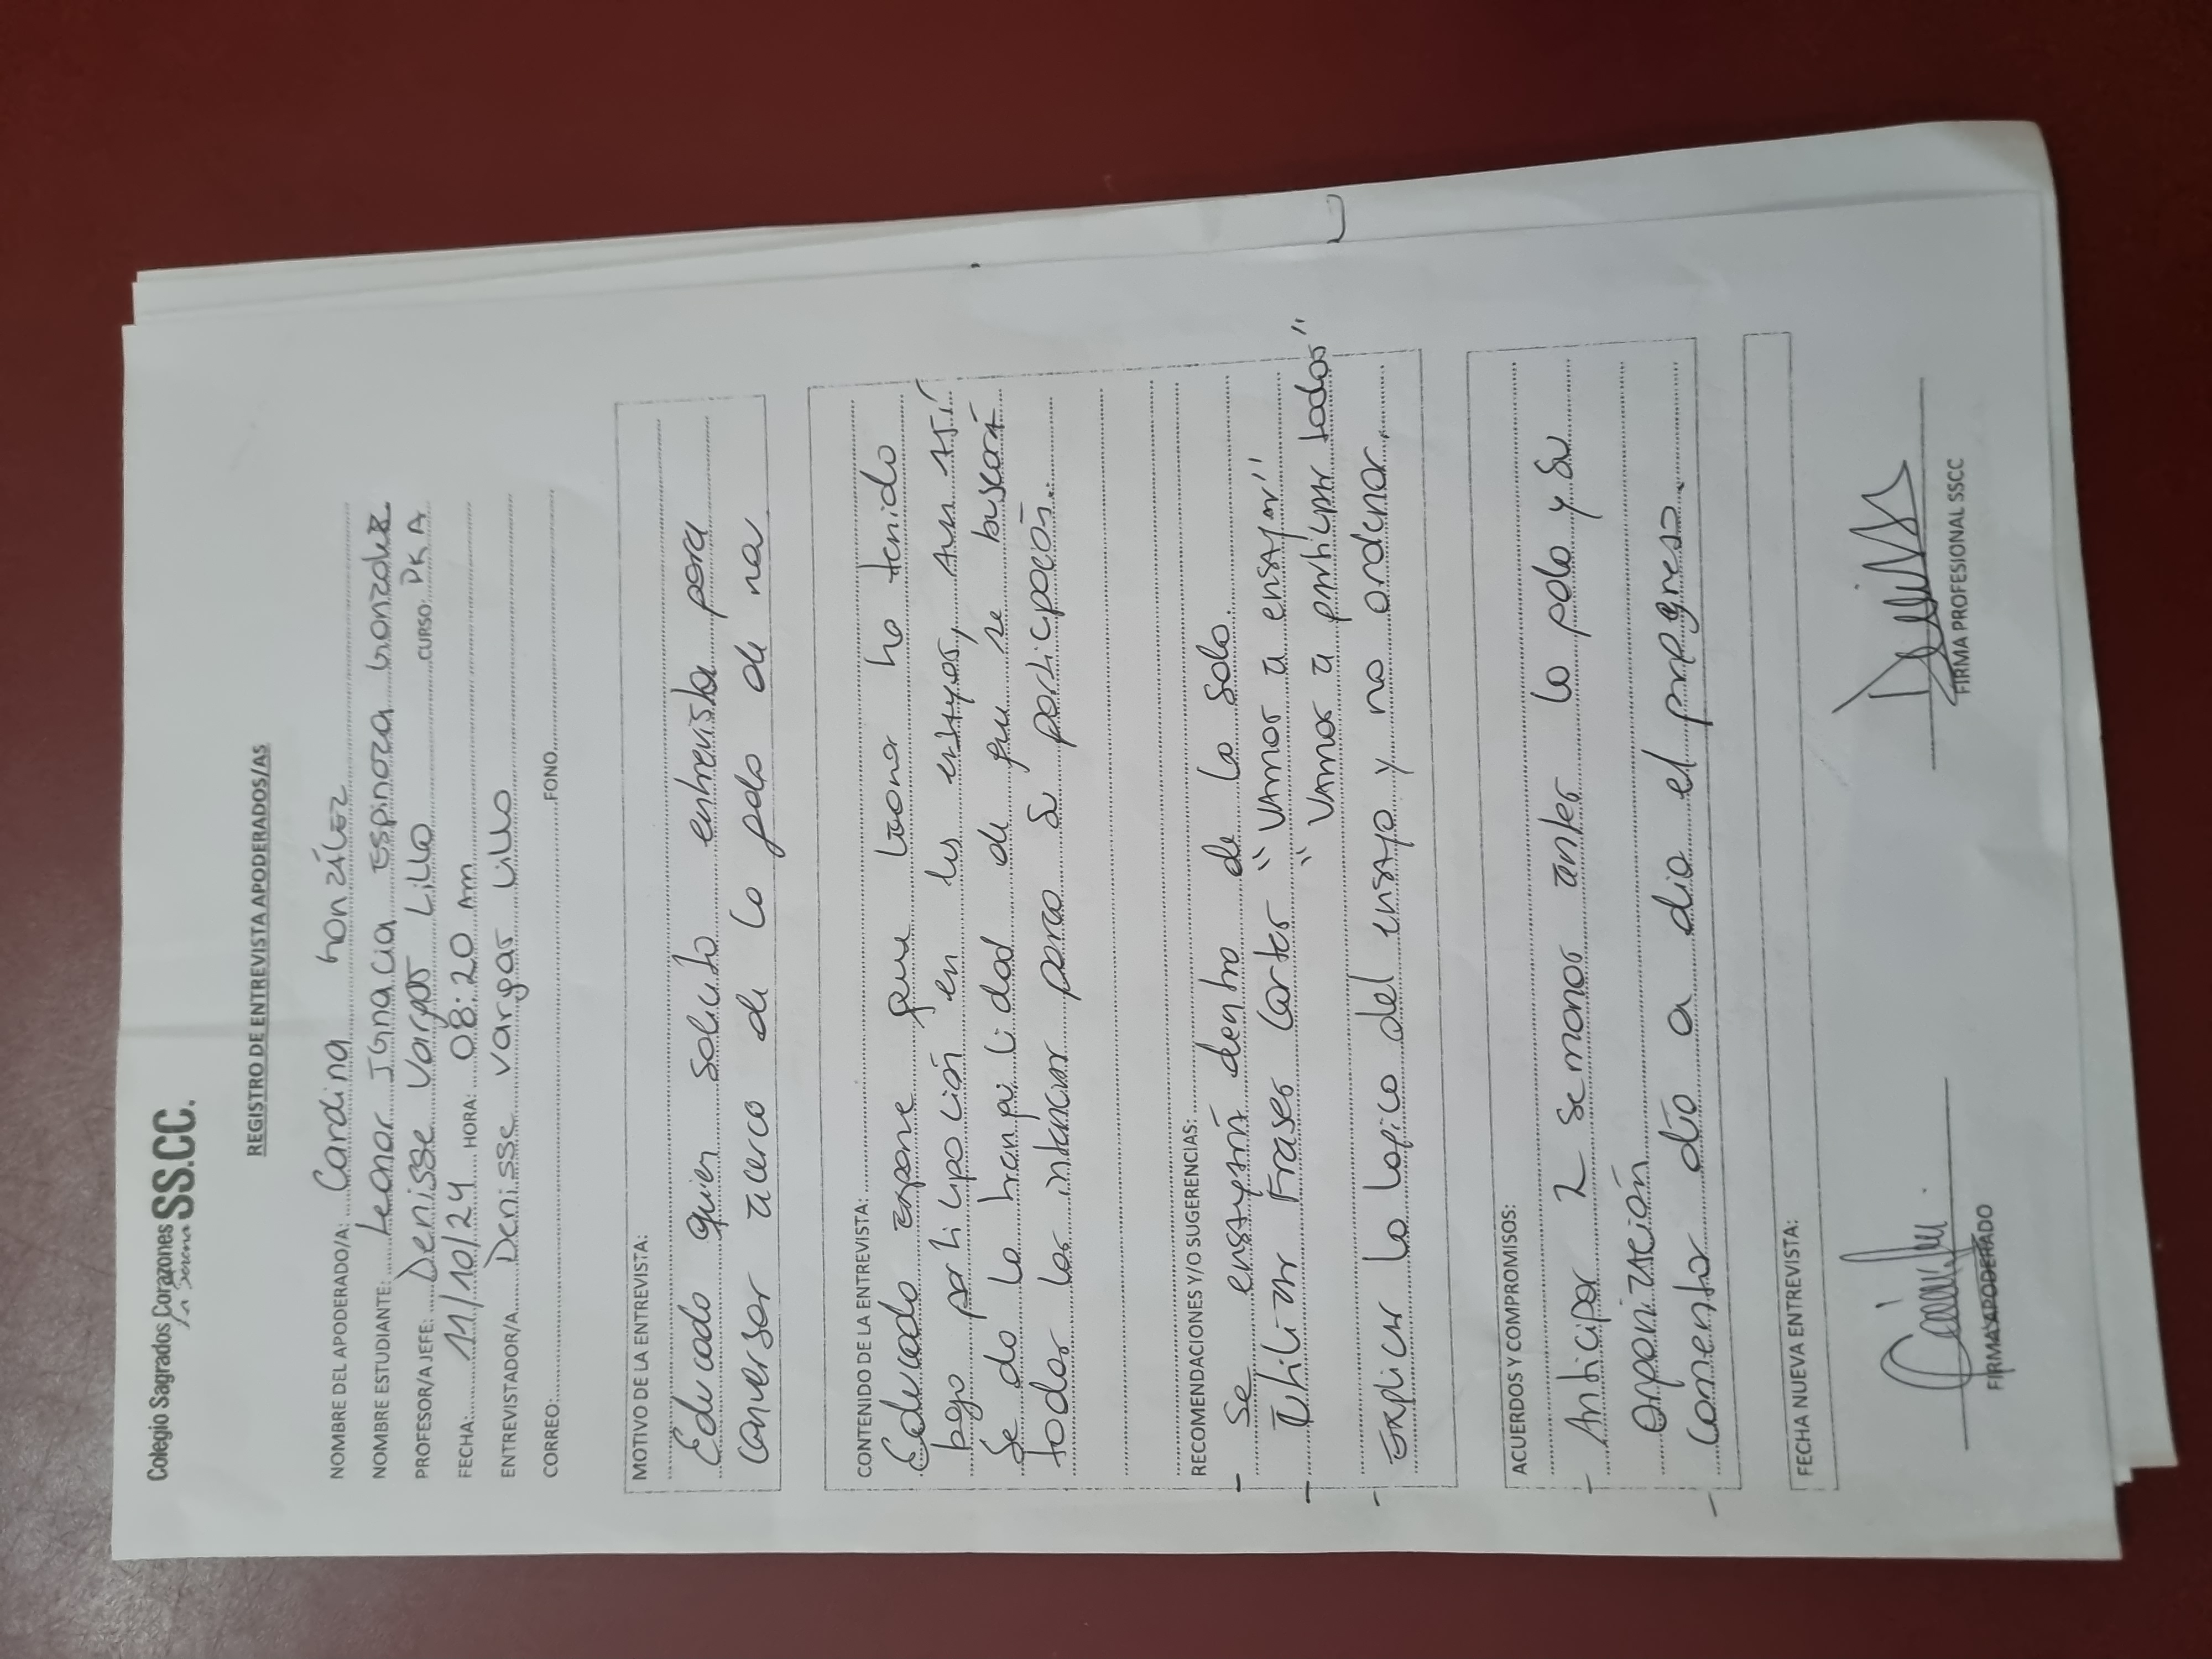 Colegio Sagrados Corazones SS.CC.
La Serena
REGISTRO DE ENTREVISTA APODERADOS/AS
NOMBRE DEL APODERADO/A: Carolina González
NOMBRE ESTUDIANTE: Leonor Ignacia Espinoza González
PROFESOR/A JEFE: Denisse Vargas Lillo CURSO: PK A
FECHA: 11/10/24 HORA: 08:20 Am
ENTREVISTADOR/A Denisse Vargas Lillo
CORREO: FONO
MOTIVO DE LA ENTREVISTA:
Educado quien solicito entrevista para
conversar acerca de la gala de na
CONTENIDO DE LA ENTREVISTA:
Educado expone que Leonor ha tenido
baja participación en los ensayos, aun así
Se da la tranquilidad de que se buscará
todas las intancias para su participación.
RECOMENDACIONES Y/O SUGERENCIAS:
- Se ensayará dentro de la sala.
- Utilizar Frases cortas "Vamos a ensayar"
"Vamos a participar todos"
- Explicar la logica del ensayo y no ordenar.
ACUERDOS Y COMPROMISOS:
- Anticipar 2 semanas antes la gala y su
organización
- Comentar día a dia el progreso.
FECHA NUEVA ENTREVISTA:
FIRMA APODERADO FIRMA PROFESIONAL SSCC